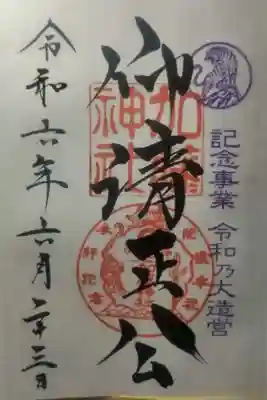 記念事業 令和乃大造営
加藤
神社
仰清正公
令和六年六月二十三日